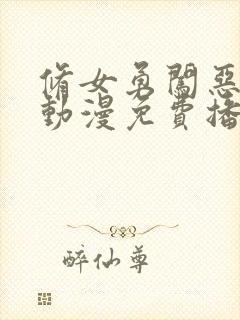 脩女勇闖惡
動漫免費播
醉仙尊